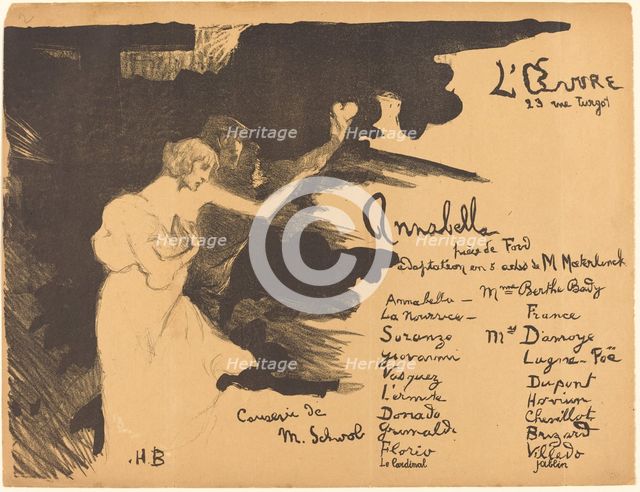 L'ŒUVRE
23 rue Turgot
Annabella
pièce de Ford
adaptation en 5 actes de M Mæterlinck
Annabella — Mme Berthe Bady
La Nourrice — France
Soranzo Mrs Damoye
Giovanni Lugné-Poë
Vasquez Dupont
L'ermite Hovian
Donado Chevillot
Grimaldi Brizard
Florio Villedo
Le Cardinal Jablin
Causerie de
M. Schwob
H B
Heritage
Images
Heritage
Images
Heritage
Images
Heritage
Images